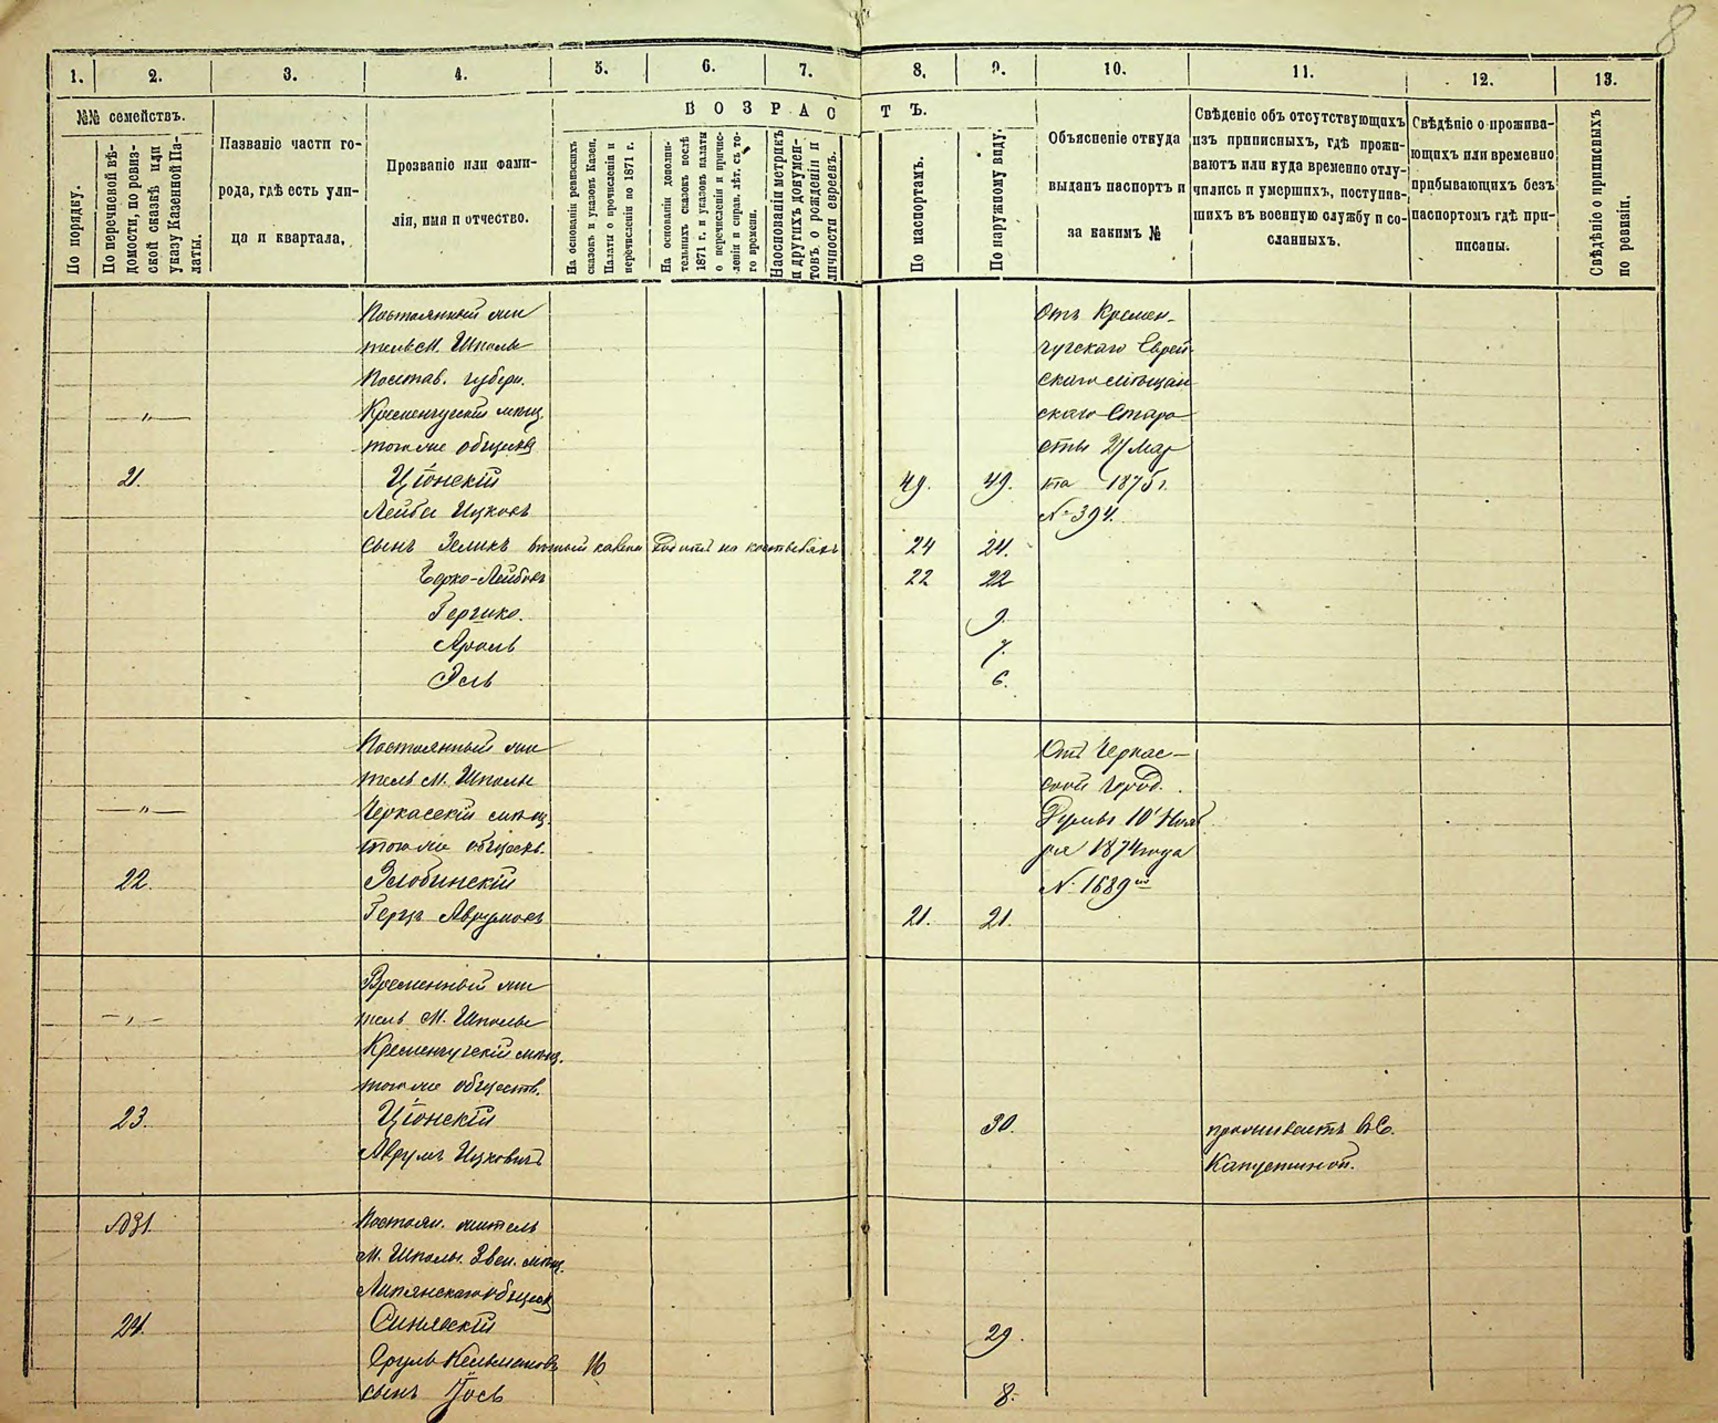 8
1. 2. 3. 4. 5. 6. 7. 8. 9. 10. 11. 12. 13.
№№ семействъ.
По порядку.
По перечневой вѣ-
домости, по ревиз-
ской сказкѣ или
указу Казенной Па-
латы.
Названіе части го-
рода, гдѣ есть ули-
ца и квартала.
Прозваніе или фами-
лія, имя и отчество.
ВОЗРАСТЪ.
На основаніи ревизскихъ
сказокъ и указовъ Казен.
Палаты о причисленіи и
перечисленіи по 1871 г.
На основаніи дополни-
тельныхъ сказокъ послѣ
1871 г. и указовъ палаты
о перечисленіи и причис-
леніи и справ. лѣт. съ то-
го времени.
На основаніи метрикъ
и другихъ докумен-
товъ о рожденіи и
личности евреевъ.
По паспортамъ.
По наружному виду.
Объясненіе откуда
выданъ паспортъ и
за какимъ №
Свѣденіе объ отсутствующихъ
изъ приписныхъ, гдѣ прожи-
ваютъ или куда временно отлу-
чились и умершихъ, поступив-
шихъ въ военную службу и со-
сланныхъ.
Свѣдѣніе о прожива-
ющихъ или временно
прибывающихъ безъ
паспортомъ гдѣ при-
писаны.
Свѣдѣніе о приписныхъ
по ревизіи.
Постоянный жи
тель М. Шполы
Полтав. губерн.
— „ — Кременчугскій мѣщ.
того же общества
21. Ціонскій 49. 49.
Лейба Ицковъ
сынъ Зеликъ 24 24.
Берко-Лейбовъ 22 22
Гершко. 9.
Аронъ 7.
Эль 6.
Отъ Кремен-
чугскаго Еврей
скаго мѣщан
скаго Старо
сты 27 Мар
та 1875 г.
№ 394.
Постоянный жи
тель М. Шполы
— „ — Черкасскій мѣщ.
того же обществ.
22. Злобинскій
Герцъ Аврумовъ 21. 21.
Отъ Черкас—
ской Город.
Думы 10 Нояб
ря 1874 года
№ 1689
Временный жи
— „ — тель М. Шполы
Кременчугскій мѣщ.
того же обществ.
23. Ціонскій 30. проживаетъ въ С.
Аврумъ Ицковичъ Капустиной.
Постоян. житель
М. Шполы. Звен. мѣщ.
Липянскаго общест
24. Синявскій 29.
Сруль Кельмановъ 16
сынъ Іось 8.